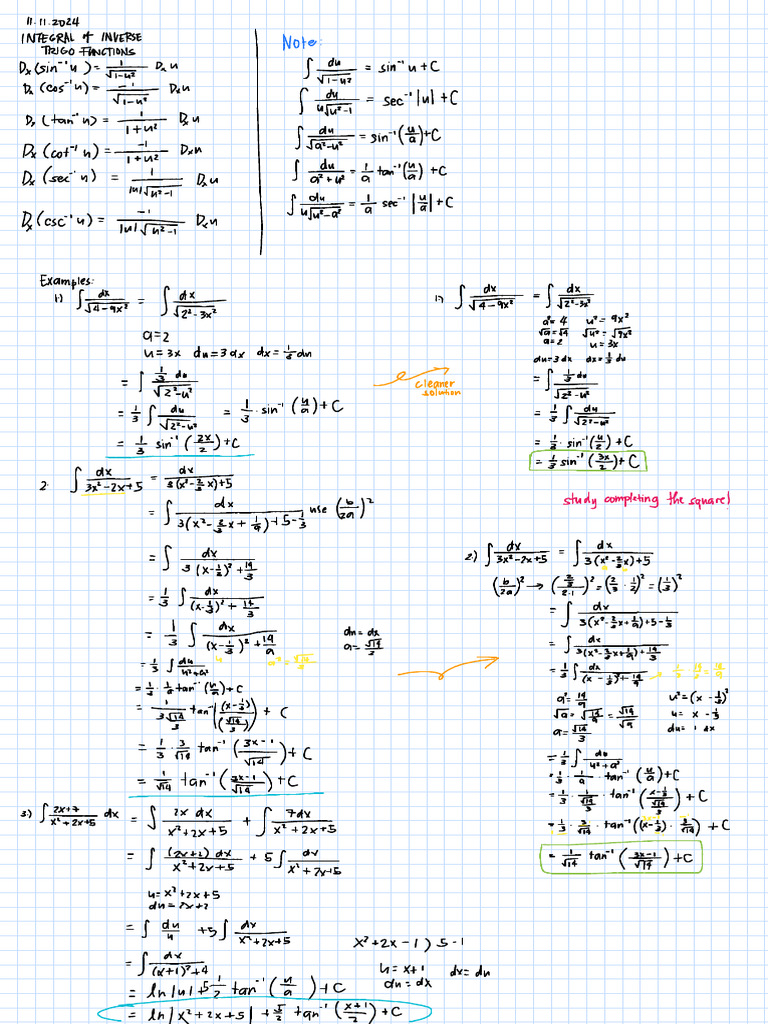 11.11.2024
INTEGRAL of INVERSE
TRIGO FUNCTIONS
Dx (sin⁻¹ u) = 1/√(1-u²) Dx u
Dx (cos⁻¹ u) = -1/√(1-u²) Dx u
Dx (tan⁻¹ u) = 1/(1+u²) Dx u
Dx (cot⁻¹ u) = -1/(1+u²) Dx u
Dx (sec⁻¹ u) = 1/(|u|√(u²-1)) Dx u
Dx (csc⁻¹ u) = -1/(|u|√(u²-1)) Dx u
Note:
∫ du/√(1-u²) = sin⁻¹ u + C
∫ du/(u√(u²-1)) = sec⁻¹ |u| + C
∫ du/√(a²-u²) = sin⁻¹ (u/a) + C
∫ du/(a²+u²) = 1/a tan⁻¹ (u/a) + C
∫ du/(u√(u²-a²)) = 1/a sec⁻¹ |u/a| + C
Examples:
1.) ∫ dx/√(4-9x²) = ∫ dx/√(2²-3x²)
a=2
u=3x du=3dx dx=1/3 du
= ∫ (1/3 du)/√(2²-u²)
= 1/3 ∫ du/√(2²-u²) = 1/3 · sin⁻¹ (u/a) + C
= 1/3 sin⁻¹ (2x/2) + C
cleaner
solution
1.) ∫ dx/√(4-9x²) = ∫ dx/√(2²-3x²)
a²=4 u²=9x²
√a=√4 √u²=√9x²
a=2 u=3x
du=3dx dx=1/3 du
= ∫ (1/3 du)/√(2²-u²)
= 1/3 ∫ du/√(2²-u²)
= 1/3 · sin⁻¹ (u/2) + C
= 1/3 sin⁻¹ (3x/2) + C
study completing the square!
2. ∫ dx/(3x²-2x+5) = dx/(3(x²-2/3 x)+5)
= ∫ dx/(3(x²-2/3 x+1/9)+5-1/3) use (b/2a)²
= ∫ dx/(3(x-1/3)²+14/3)
= 1/3 ∫ dx/((x-1/3)²+14/3)
= 1/3 ∫ dx/((x-1/3)²+14/9) du=dx
u a²=√14/3 a=√14/3
= 1/3 ∫ du/(u²+a²)
= 1/3 · 1/a tan⁻¹ (u/a) + C
= 1/(3 √14/3) tan⁻¹ ((x-1/3)/(√14/3)) + C
= 1/3 · 3/√14 tan⁻¹ ((3x-1)/√14) + C
= 1/√14 tan⁻¹ ((3x-1)/√14) + C
2.) ∫ dx/(3x²-2x+5) = ∫ dx/(3(x²-2/3 x)+5)
(b/2a)² → ((2/3)/(2·1))² = (2/3 · 1/2)² = (1/3)²
= ∫ dx/(3(x²-2/3 x+1/9)+5-1/3)
= ∫ dx/(3(x²-2/3 x+1/9)+14/3)
= 1/3 ∫ dx/((x-1/3)²+14/9) → 1/3 · 14/3 = 14/9
a²=14/9 u²=(x-1/3)²
√a=√(14/9)=√14/√9 u=x-1/3
a=√14/3 du=1 dx
= 1/3 ∫ du/(u²+a²)
= 1/3 · 1/a · tan⁻¹ (u/a) + C
= 1/3 · 1/(√14/3) · tan⁻¹ ((x-1/3)/(√14/3)) + C
= 1/3 · 3/√14 · tan⁻¹ ((x-1/3) · 3/√14) + C
= 1/√14 tan⁻¹ ((3x-1)/√14) + C
3.) ∫ (2x+7)/(x²+2x+5) dx = ∫ 2x dx/(x²+2x+5) + ∫ 7dx/(x²+2x+5)
= ∫ (2x+2) dx/(x²+2x+5) + 5 ∫ dx/(x²+2x+5)
u=x²+2x+5
du=2x+2
= ∫ du/u + 5 ∫ dx/(x²+2x+5)
x²+2x-1) 5-1
= ∫ dx/((x+1)²+4)
u=x+1 dx=du
du=dx
= ln|u| + 5 1/2 tan⁻¹ (u/a) + C
= ln|x²+2x+5| + 5/2 tan⁻¹ ((x+1)/2) + C